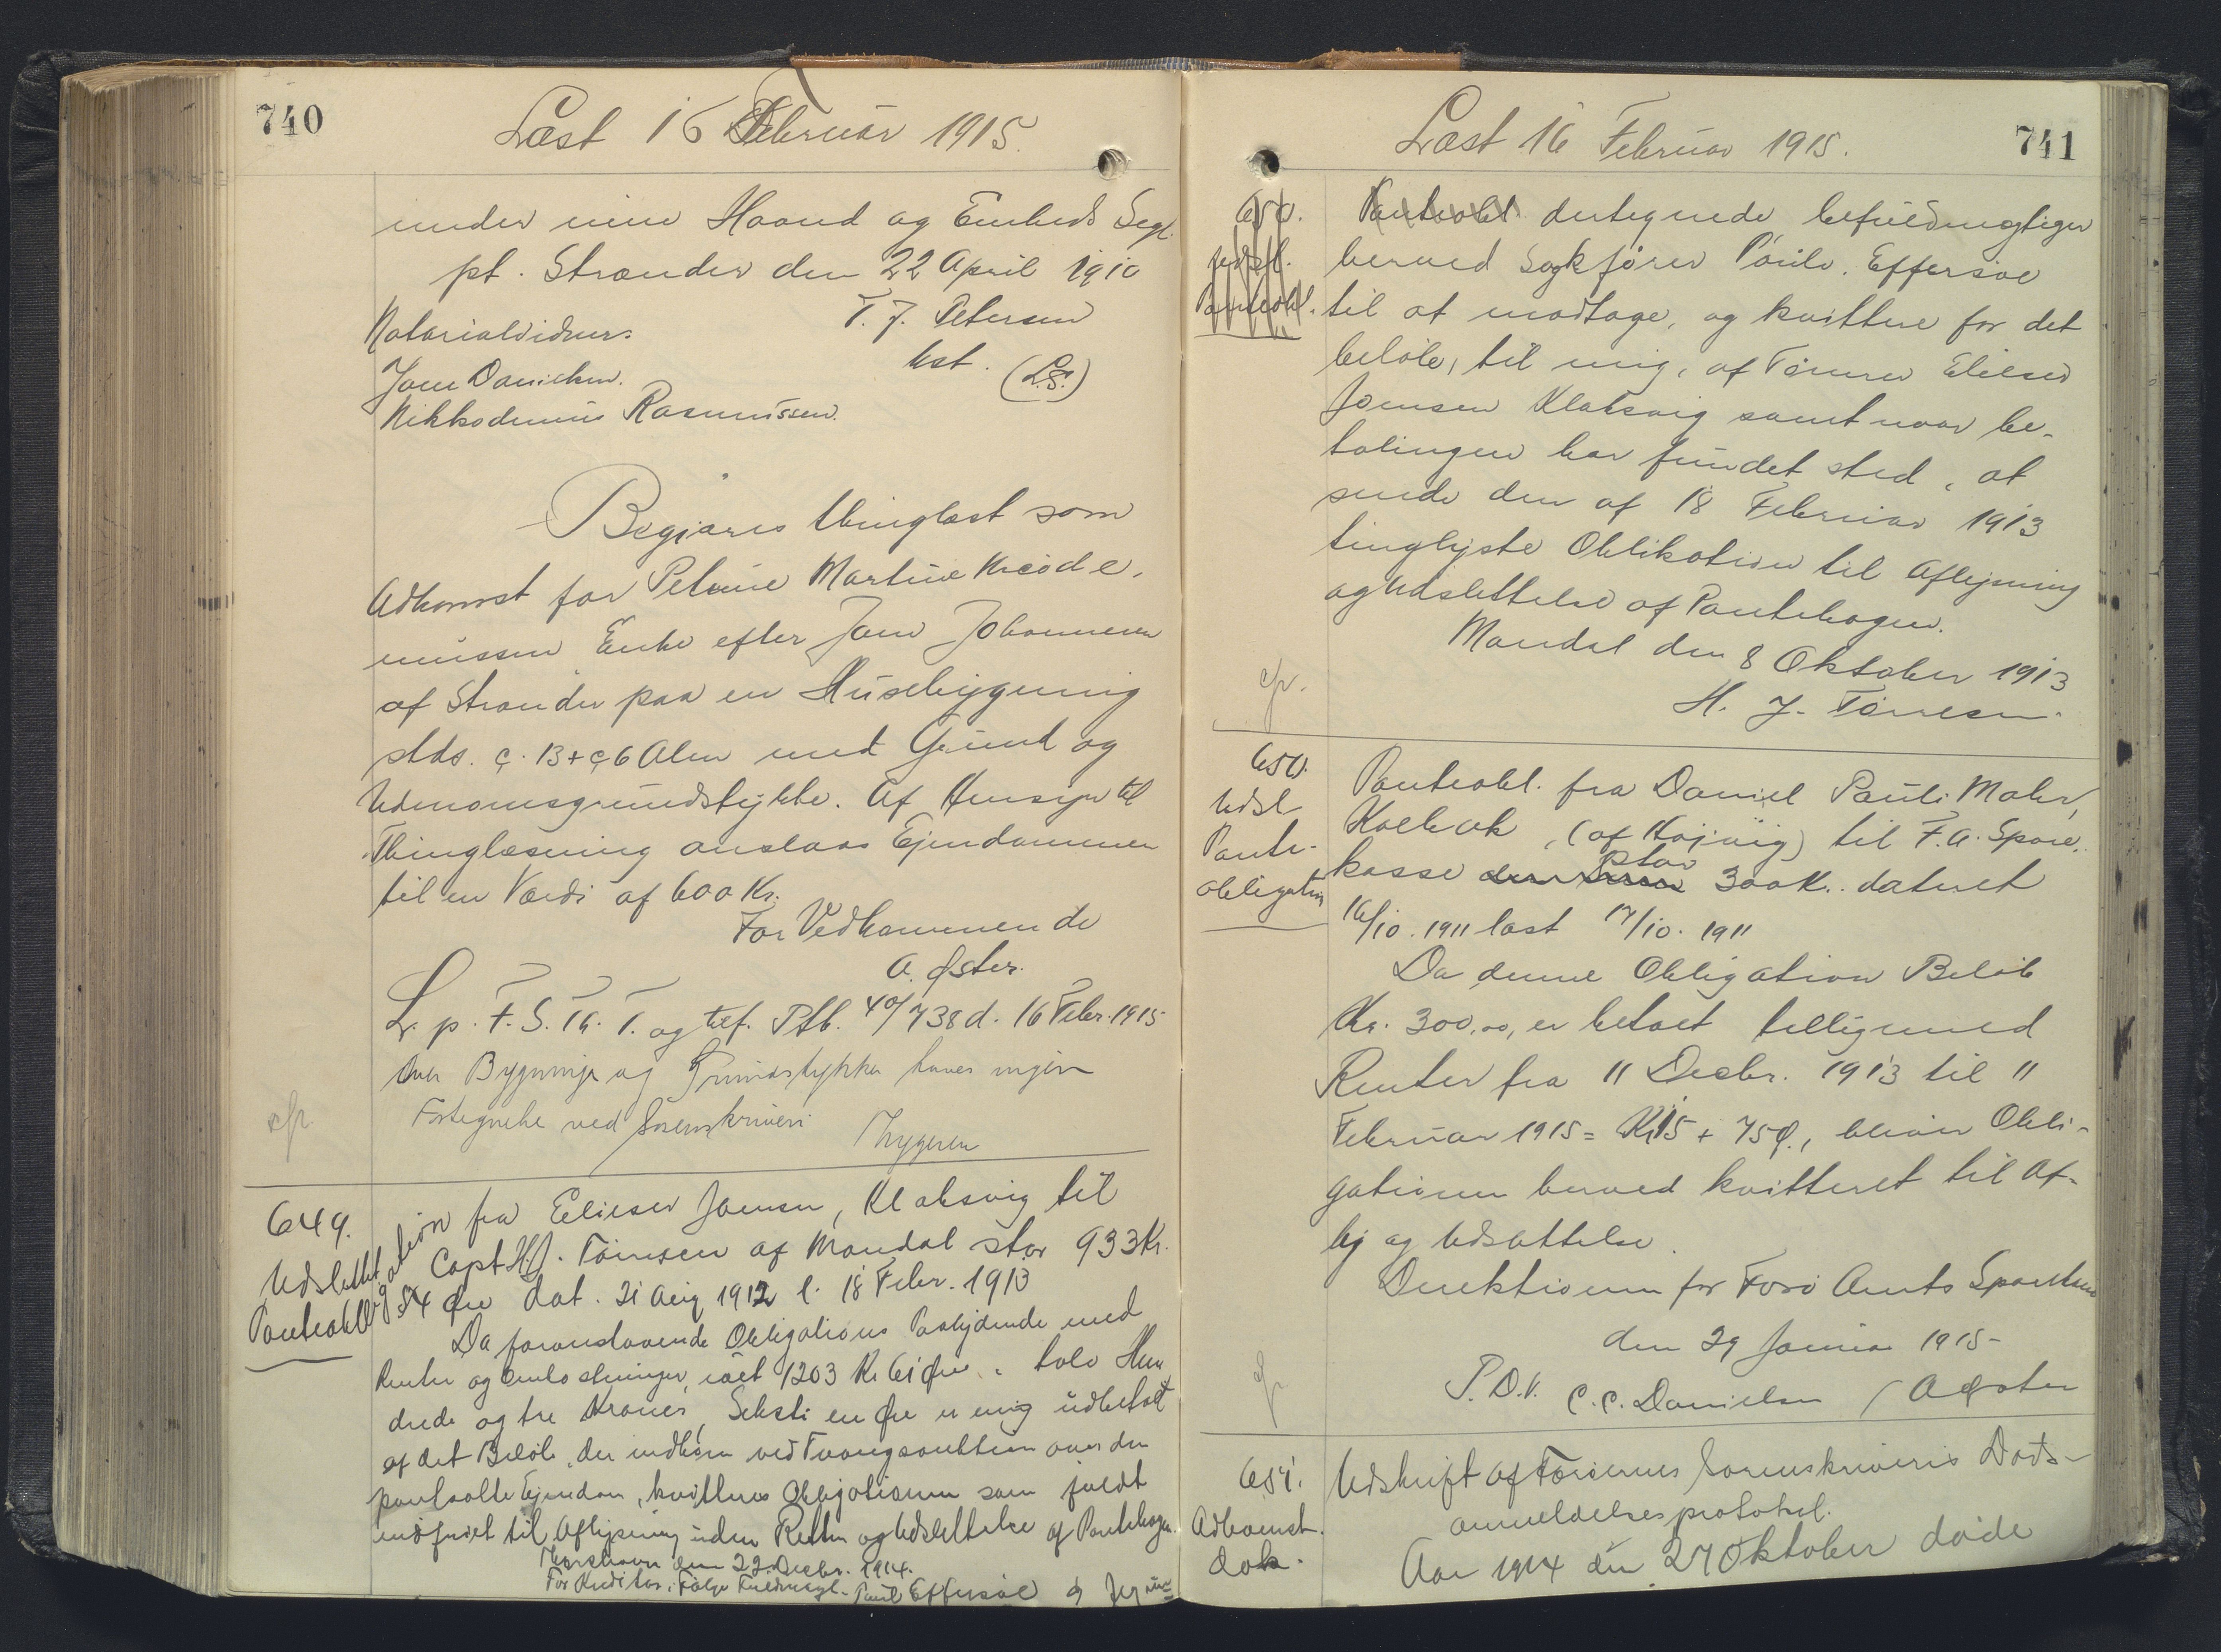 740
Læst 16 Februar 1915.
under min Haand og Embeds Segl.
pt. Strander den 22 April 1910
T. J. Petersen
Notarialvidner:
kst. (L.S.)
Joen Danielsen.
Nikkodemus Rasmussen.
Begjæres thinglæst som
Adkomst for Petrine Martine
Enke efter Joen Johannesen
af Strander paa en Husebygning
stds. ç. 13 + ç 6 Alen med Grund og
Udmarksgrundstykke. Af Hensyn til
Thinglæsning anslaas Ejendommen
til en Værdi af 600 Kr.
For Vedkommende
A. Øster.
L. p. F. S. Th. T. og tilf. Ptb. 40/738 d. 16 Febr. 1915
Over Bygninger og Grundstykker haves ingen
Fortegnelse ved Sorenskriveri
Thygesen
cfr.
649.
Udslettet
Panteobligation fra Elieser Joensen, Klaksvig til
Capt. H. J. Tönnesen af Mandal stor 933 Kr.
54 Øre dat. 21 Aug 1912 l. 18 Febr. 1913
Da foranstaaende Obligations Paalydende med
Renter og Omkostninger, ialt 1203 Kr 61 Øre, : tolv Hun
drede og tre Kroner, Seksti en Øre er mig udbetalt
af det Beløb, der indkom ved Tvangsauktion over den
pantsatte Ejendom, kvitteres Obligationen som fuldt
indfriet til Aflysning inden Retten og Udslettelse af Pantebogen.
Thorshavn den 22 Decbr. 1914.
For Kreditor i Følge Fuldmagt. Poul Effersöe Jeg un=
741
Læst 16 Februar 1915.
650.
Udsl.
Panteobl.
Panteobl. dertegnede befuldmægtiger
herved Sagfører Poul Effersöe
til at modtage, og kvittere for det
beløb, til mig, af Tömrer Elieser
Joensen Klaksvig samt naar be-
talingen har fundet sted, at
sende den af 18 Februar 1913
tinglyste Oblikation til Aflysning
og Udslettelse af Pantebogen.
Mandal den 8 Oktober 1913
H. J. Tönnesen.
cfr.
650.
Udsl
Pante-
obligation
Panteobl. fra Daniel Pauli Mohr,
Kolbak, (af Hojvig) til F. A. Spare-
kasse stor 300 K. dateret
16/10. 1911 læst 17/10. 1911
Da denne Obligation Beløb
Kr. 300,00, er betalt tilligemed
Renter fra 11 Decbr. 1913 til 11
Februar 1915 = Kr 15 + 75 Ø., bliver Obli-
gationen herved kvitteret til Af-
lys og Udsættelse.
Direktionen for Færø Amts Sparekasse
den 29 Januar 1915-
P. D. V. C. C. Danielsen / A Øster
cfr
651.
Adkomst.
dok.
Udskrift af Færøernes Sorenskriveris Døds-
anmeldelsesprotokol.
Aar 1914 den 27 Oktober døde